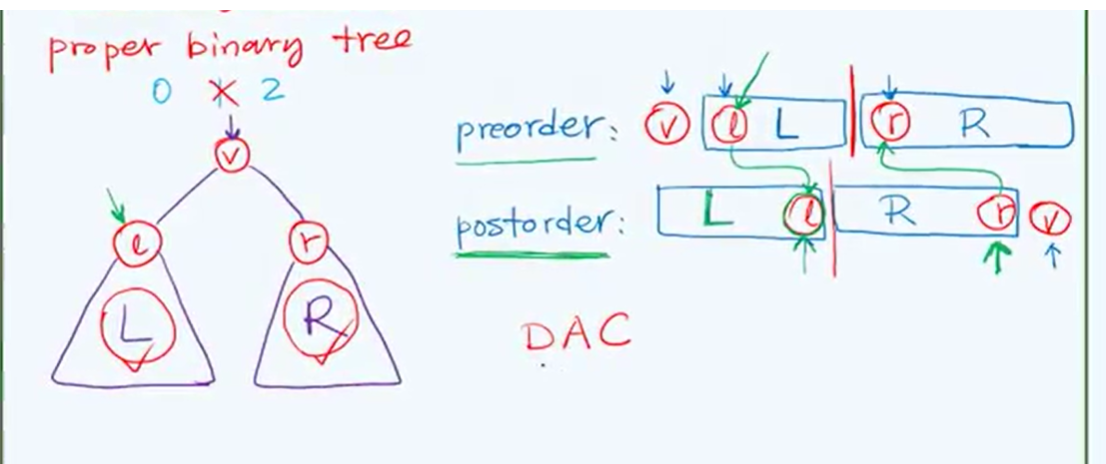 proper binary tree
0 X 2
v
l r
L R
preorder: v l L r R
postorder: L l R r v
DAC